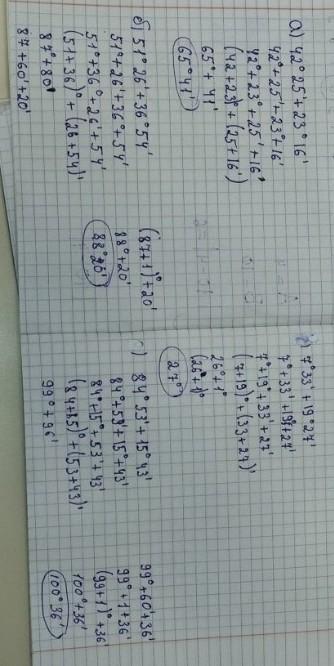 а) 42°25'+23°16'
42°+25'+23°+16'
42°+23°+25'+16'
(42+23)°+(25+16')
65°+41'
65°41'
б) 51°26'+36°54'
51°+26'+36°+54'
51°+36°+26'+54'
(51+36)°+(26+54)'
87°+80'
87+60'+20'
(87+1)°+20'
88°+20'
88°20'
7°33'+19°27'
7°+33'+19°+27'
7°+19°+33'+27'
(7+19)°+(33+27)'
26°+1°
(26+1)°
27°
) 84°53'+15°43'
84°+53'+15°+43'
84°+15°+53'+43'
(84+15)°+(53+43)'
99°+96'
99°+60'+36'
99°+1+36'
(99+1)°+36
100°+36'
100°36'